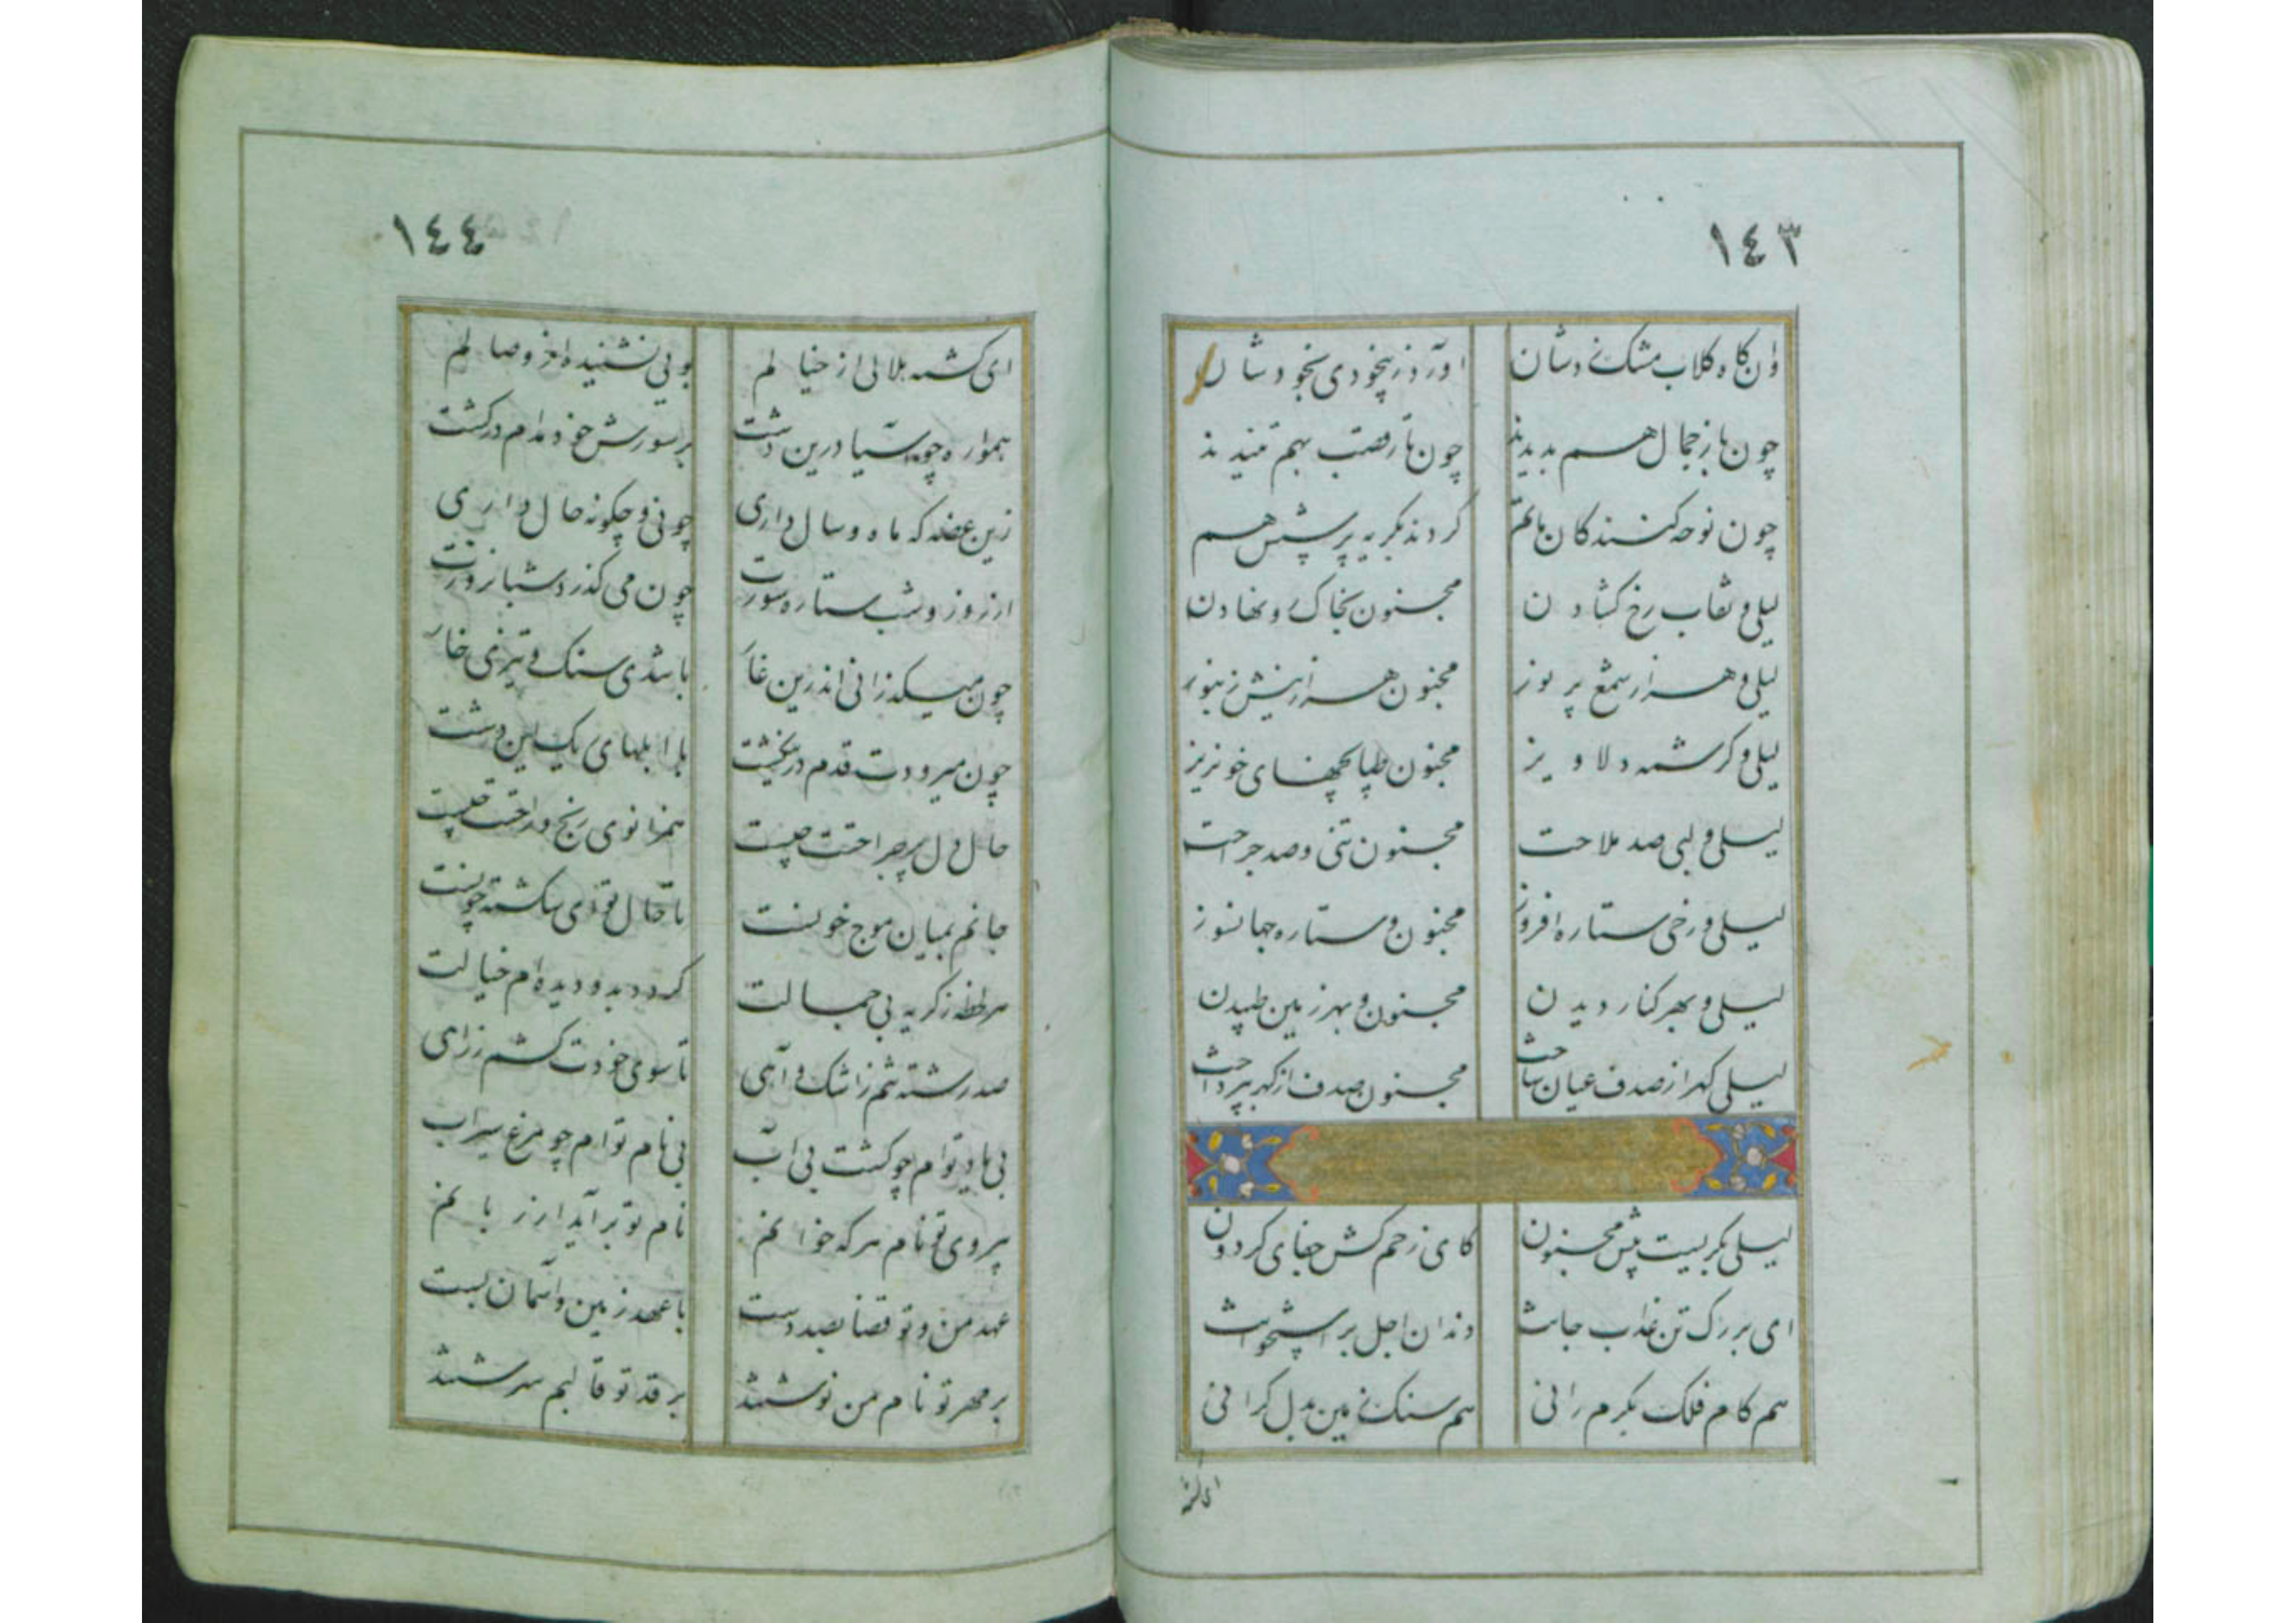 ١٤٣
وان کاه کلاب مشک دشان اورد ز بیخودی بخود شان
چون باز جمال هم بدیدند چون تار قصب بهم تنیدند
چون نوحه کنندکان ماتم کردند بکریه پرسش هم
لیلی و نقاب رخ کشادن مجنون بخاک رو نهادن
لیلی و هزار شمع پر نور مجنون هزار نیش زنبور
لیلی و کرشمه دلاویز مجنون طپانچهای خونریز
لیلی و لبی صد ملاحت مجنون تنی و صد جراحت
لیلی و رخی ستاره افروز مجنون و ستاره جهانسوز
لیلی و بهر کنار دیدن مجنون و بهر زمین طپیدن
لیلی کهر از صدف عیان ساخت مجنون صدف از کهر بپرداخت
لیلی بکریست پیش مجنون کای زخم کش جفای کردون
ای بر رک تن عذاب جانت دندان اجل بر استخوانت
هم کام فلک بکرم رانی هم سنک زمین بدل کرانی
ای کشته
١٤٤
ای کشته هلالی از خیالم بویی نشنیده از وصالم
همواره چو آسیا درین دشت بر سورش خود مدام درکشت
زین غصه که ماه و سال داری چونی و چکونه حال داری
از روز و شب ستاره سوزت چون می کذرد شبانروزت
چون میکذرانی اندرین غار با تندی سنک و تیزی خار
چون میرودت قدم در با ابلهای یک
حال دل پر جراحتت چیست همزانوی رنج و راحتت کیست
جانم بمیان موج خونست تا حال تو ای شکسته چونست
هر لحظه ز کریه بی جمالت کردد بدو دیده ام خیالت
صد رشته تنم ز اشک و آهی تا سوی خودت کشم ز راهی
بی یاد تو ام چو کشت بی آب بی نام تو ام چو مرغ سیراب
بر روی تو نام هر که خوانم نام تو بر آید از زبانم
عهد من و تو قضا بصد دست با عهد زمین و آسمان بست
بر مهر تو نام من نوشتند بر قد تو قالبم سرشتند